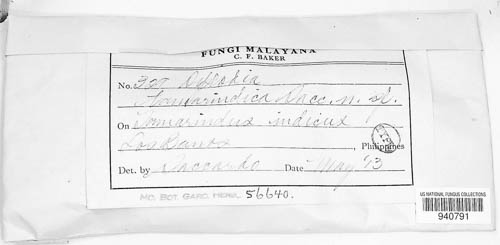 FUNGI MALAYANA
C. F. BAKER
No. 327 Diplodia
Tamarindica Sacc. n. sp.
On Tamarindus indicus
Los Banos Philippines
Det. by Saccardo Date May '13
MO. BOT. GARD. HERB. 56640.
US NATIONAL FUNGUS COLLECTIONS
940791